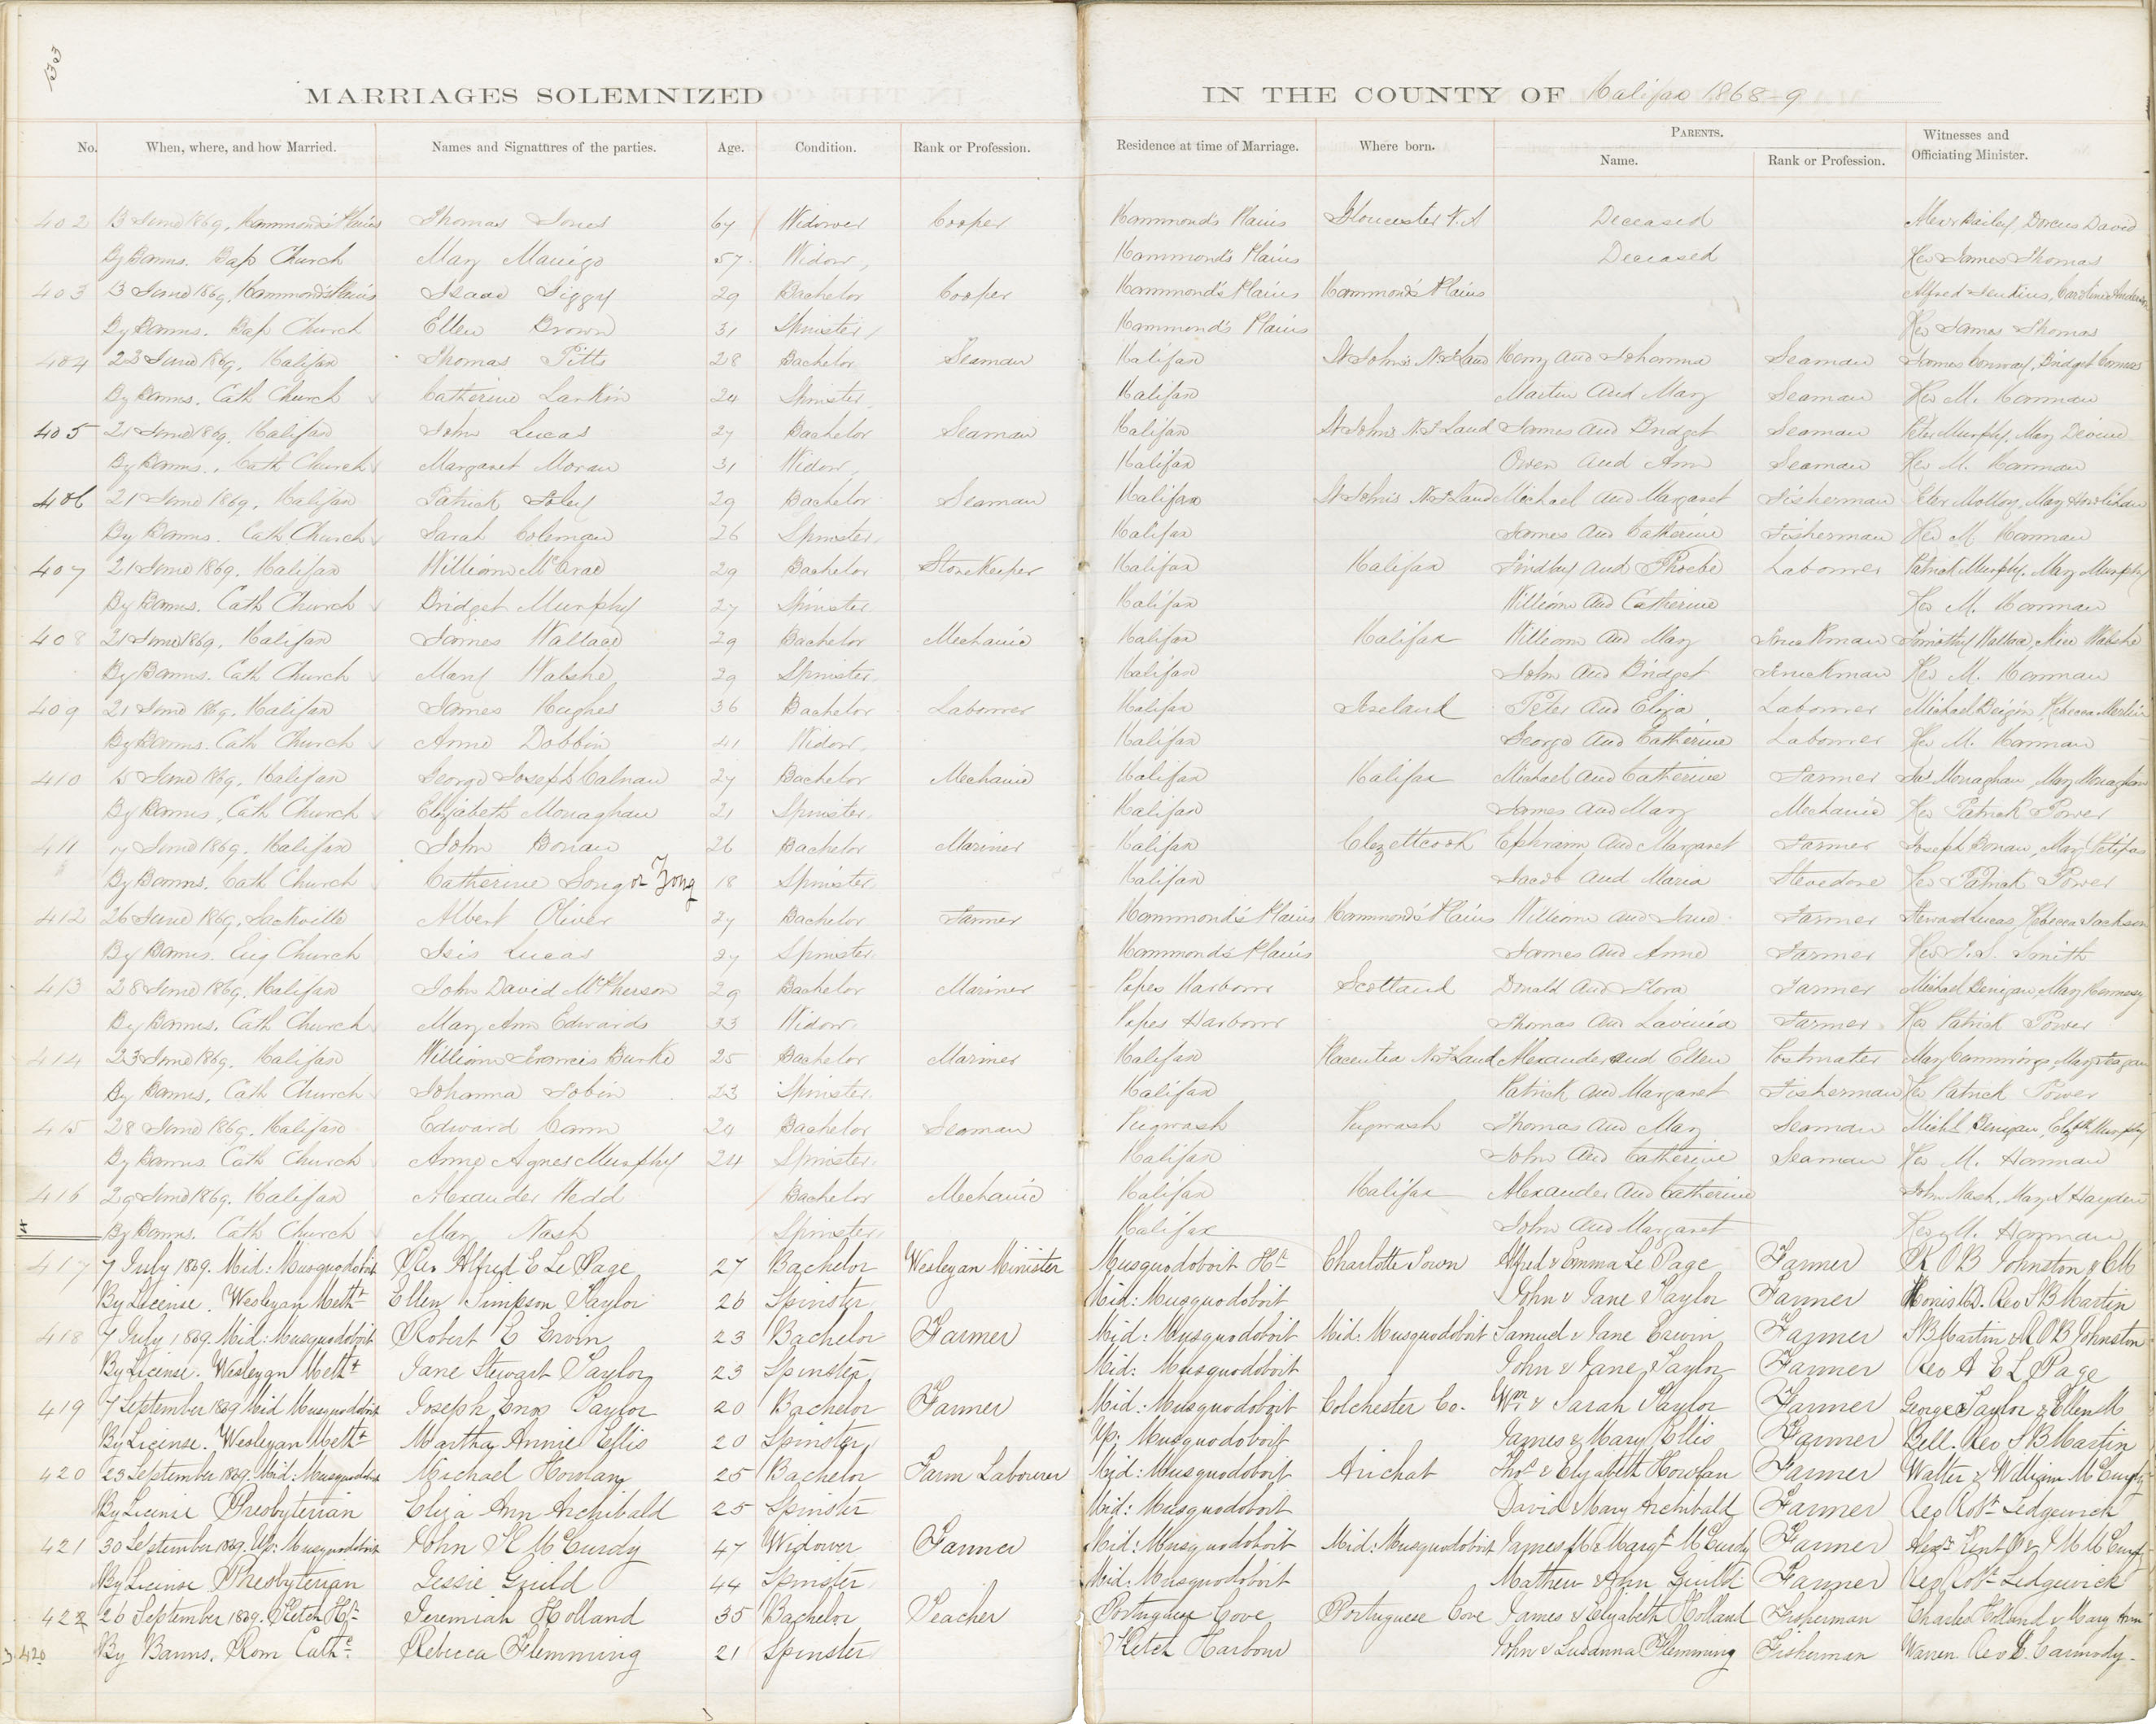 133
MARRIAGES SOLEMNIZED IN THE COUNTY OF Halifax 1868-9
No. When, where, and how Married. Names and Signatures of the parties. Age. Condition. Rank or Profession. Residence at time of Marriage. Where born. PARENTS. Name. Rank or Profession. Witnesses and Officiating Minister.
402 13 June 1869, Hammond's Plains Thomas Jones 67 Widower Cooper Hammond's Plains Gloucester Deceased Dorcus David
By Banns. Bap Church Mary 57 Widow Hammond's Plains Deceased Rev James Thomas
403 13 June 1869, Hammond's Plains Isaac 29 Bachelor Cooper Hammond's Plains Hammond's Plains Alfred Jenkins, Caroline Anderson
By Banns. Bap Church Ellen Brown 31 Spinster Hammond's Plains Rev James Thomas
404 23 June 1869. Halifax Thomas Pitts 28 Bachelor Seaman Halifax St John's N.F.Land Henry and Johanna Seaman James Conway, Bridget
By Banns. Cath Church Catherine Larkin 24 Spinster Halifax Martin and Mary Seaman Rev M. Hannan
405 21 June 1869. Halifax John Lucas 27 Bachelor Seaman Halifax St John's N.F.Land James and Bridget Seaman Peter Murphy, Mary Devine
By Banns. Cath Church Margaret Moran 31 Widow Halifax Owen and Ann Seaman Rev M. Hannan
406 21 June 1869. Halifax Patrick Foley 29 Bachelor Seaman Halifax St John's N.F.Land Michael and Margaret Fisherman Peter Molloy, Mary Houlihan
By Banns. Cath Church Sarah Coleman 26 Spinster Halifax James and Catherine Fisherman Rev M Hannan
407 21 June 1869. Halifax William McCrae 29 Bachelor StoreKeeper Halifax Halifax Lindley and Phoebe Labourer Patrick Murphy, Mary Murphy
By Banns. Cath Church Bridget Murphy 27 Spinster Halifax William and Catherine Rev M. Hannan
408 21 June 1869. Halifax James Wallace 29 Bachelor Mechanic Halifax Halifax William and Mary Truckman Timothy Wallace, Walshe
By Banns. Cath Church Mary Walshe 29 Spinster Halifax John and Bridget Truckman Rev M. Hannan
409 21 June 1869. Halifax James Hughes 36 Bachelor Labourer Halifax Ireland Peter and Eliza Labourer Michael Rebecca
By Banns. Cath Church Anne Dobbin 41 Widow Halifax George and Catherine Labourer Rev M. Hannan
410 15 June 1869. Halifax George Joseph Calnan 27 Bachelor Mechanic Halifax Halifax Michael and Catherine Farmer Jas Monaghan, Mary Monaghan
By Banns, Cath Church Elizabeth Monaghan 21 Spinster Halifax James and Mary Mechanic Rev Patrick Power
411 17 June 1869. Halifax John Bonan 26 Bachelor Mariner Halifax Chezettcook Ephraim and Margaret Farmer Joseph Bonan, Mary Petipas
By Banns. Cath Church Catherine Long or Zong 18 Spinster Halifax Jacob and Maria Stevedore Rev Patrick Power
412 26 June 1869. Sackville Albert Oliver 27 Bachelor Farmer Hammond's Plains Hammond's Plains William and Jane Farmer Lucas, Rebecca Jackson
By Banns. Eng Church Isis Lucas 27 Spinster Hammond's Plains James and Anne Farmer Rev Smith
413 28 June 1869. Halifax John David McPherson 29 Bachelor Mariner Popes Harbour Scotland Donald and Flora Farmer Michael Benigan, Mary Hennesey
By Banns. Cath Church Mary Ann Edwards 33 Widow Popes Harbour Thomas and Lavinia Farmer Rev Patrick Power
414 23 June 1869. Halifax William Francis Burke 25 Bachelor Mariner Halifax Placentea N.F.Land Alexander and Ellen Postmater Mary Cummings,
By Banns. Cath Church Johanna Tobin 23 Spinster Halifax Patrick and Margaret Fisherman Rev Patrick Power
415 28 June 1869. Halifax Edward Cann 24 Bachelor Seaman Pugwash Pugwash Thomas and Mary Seaman Michl Benigan, Elizth Murphy
By Banns. Cath Church Anne Agnes Murphy 24 Spinster Halifax John and Catherine Seaman Rev M. Hannan
416 29 June 1869. Halifax Alexander Wedd Bachelor Mechanic Halifax Halifax Alexander and Catherine John Nash, Mary S Hayden
By Banns. Cath Church Mary Nash Spinster Halifax John and Margaret Rev M. Hannan
417 7 July 1869. Mid: Musquodoboit Rev Alfred E Le Page 27 Bachelor Wesleyan Minister Musquodoboit Hr Charlotte Town Alfred & Emma Le Page Farmer R O B Johnston &
By License. Wesleyan Metht Ellen Simpson Taylor 26 Spinster Mid: Musquodoboit John & Jane Taylor Farmer Rev S B Martin
418 7 July 1869. Mid: Musquodoboit Robert E Ervin 23 Bachelor Farmer Mid: Musquodoboit Mid: Musquodoboit Samuel & Jane Ervin Farmer S B Martin & R O B Johnston
By License. Wesleyan Metht Jane Stewart Taylor 23 Spinster Mid: Musquodoboit John & Jane Taylor Farmer Rev A E L Page
419 7 September 1869 Mid Musquodoboit Joseph Enos Taylor 20 Bachelor Farmer Mid: Musquodoboit Colchester Co. Wm & Sarah Taylor Farmer George Taylor & Ellen M
By License. Wesleyan Metht Martha Annie Ellis 20 Spinster Up: Musquodoboit James & Mary Ellis Farmer Bell. Rev S B Martin
420 23 September 1869. Mid: Musquodoboit Michael Howlan 25 Bachelor Farm Labourer Mid: Musquodoboit Arichat Thos & Elizabeth Howlan Farmer Walter & William McCurdy
By License Presbyterian Eliza Ann Archibald 25 Spinster Mid: Musquodoboit David & Mary Archibald Farmer Rev Robt Sedgewick
421 30 September 1869. Up: Musquodoboit John K McCurdy 47 Widower Farmer Mid: Musquodoboit Mid: Musquodoboit James M & Margt McCurdy Farmer Alexr Kent & J M McCurdy
By License Presbyterian Jessie Guild 44 Spinster Mid: Musquodoboit Mathew & Ann Guild Farmer Rev Robt Sedgewick
422 26 September 1869. Ketch Hr Jeremiah Holland 35 Bachelor Teacher Portuguese Cove Portuguese Cove James & Elizabeth Holland Fisherman Charles Holland & Mary Ann
420 By Banns. Rom Cathc Rebecca Flemming 21 Spinster Ketch Harbour John & Susanna Flemming Fisherman Warren Rev E. Carmody.